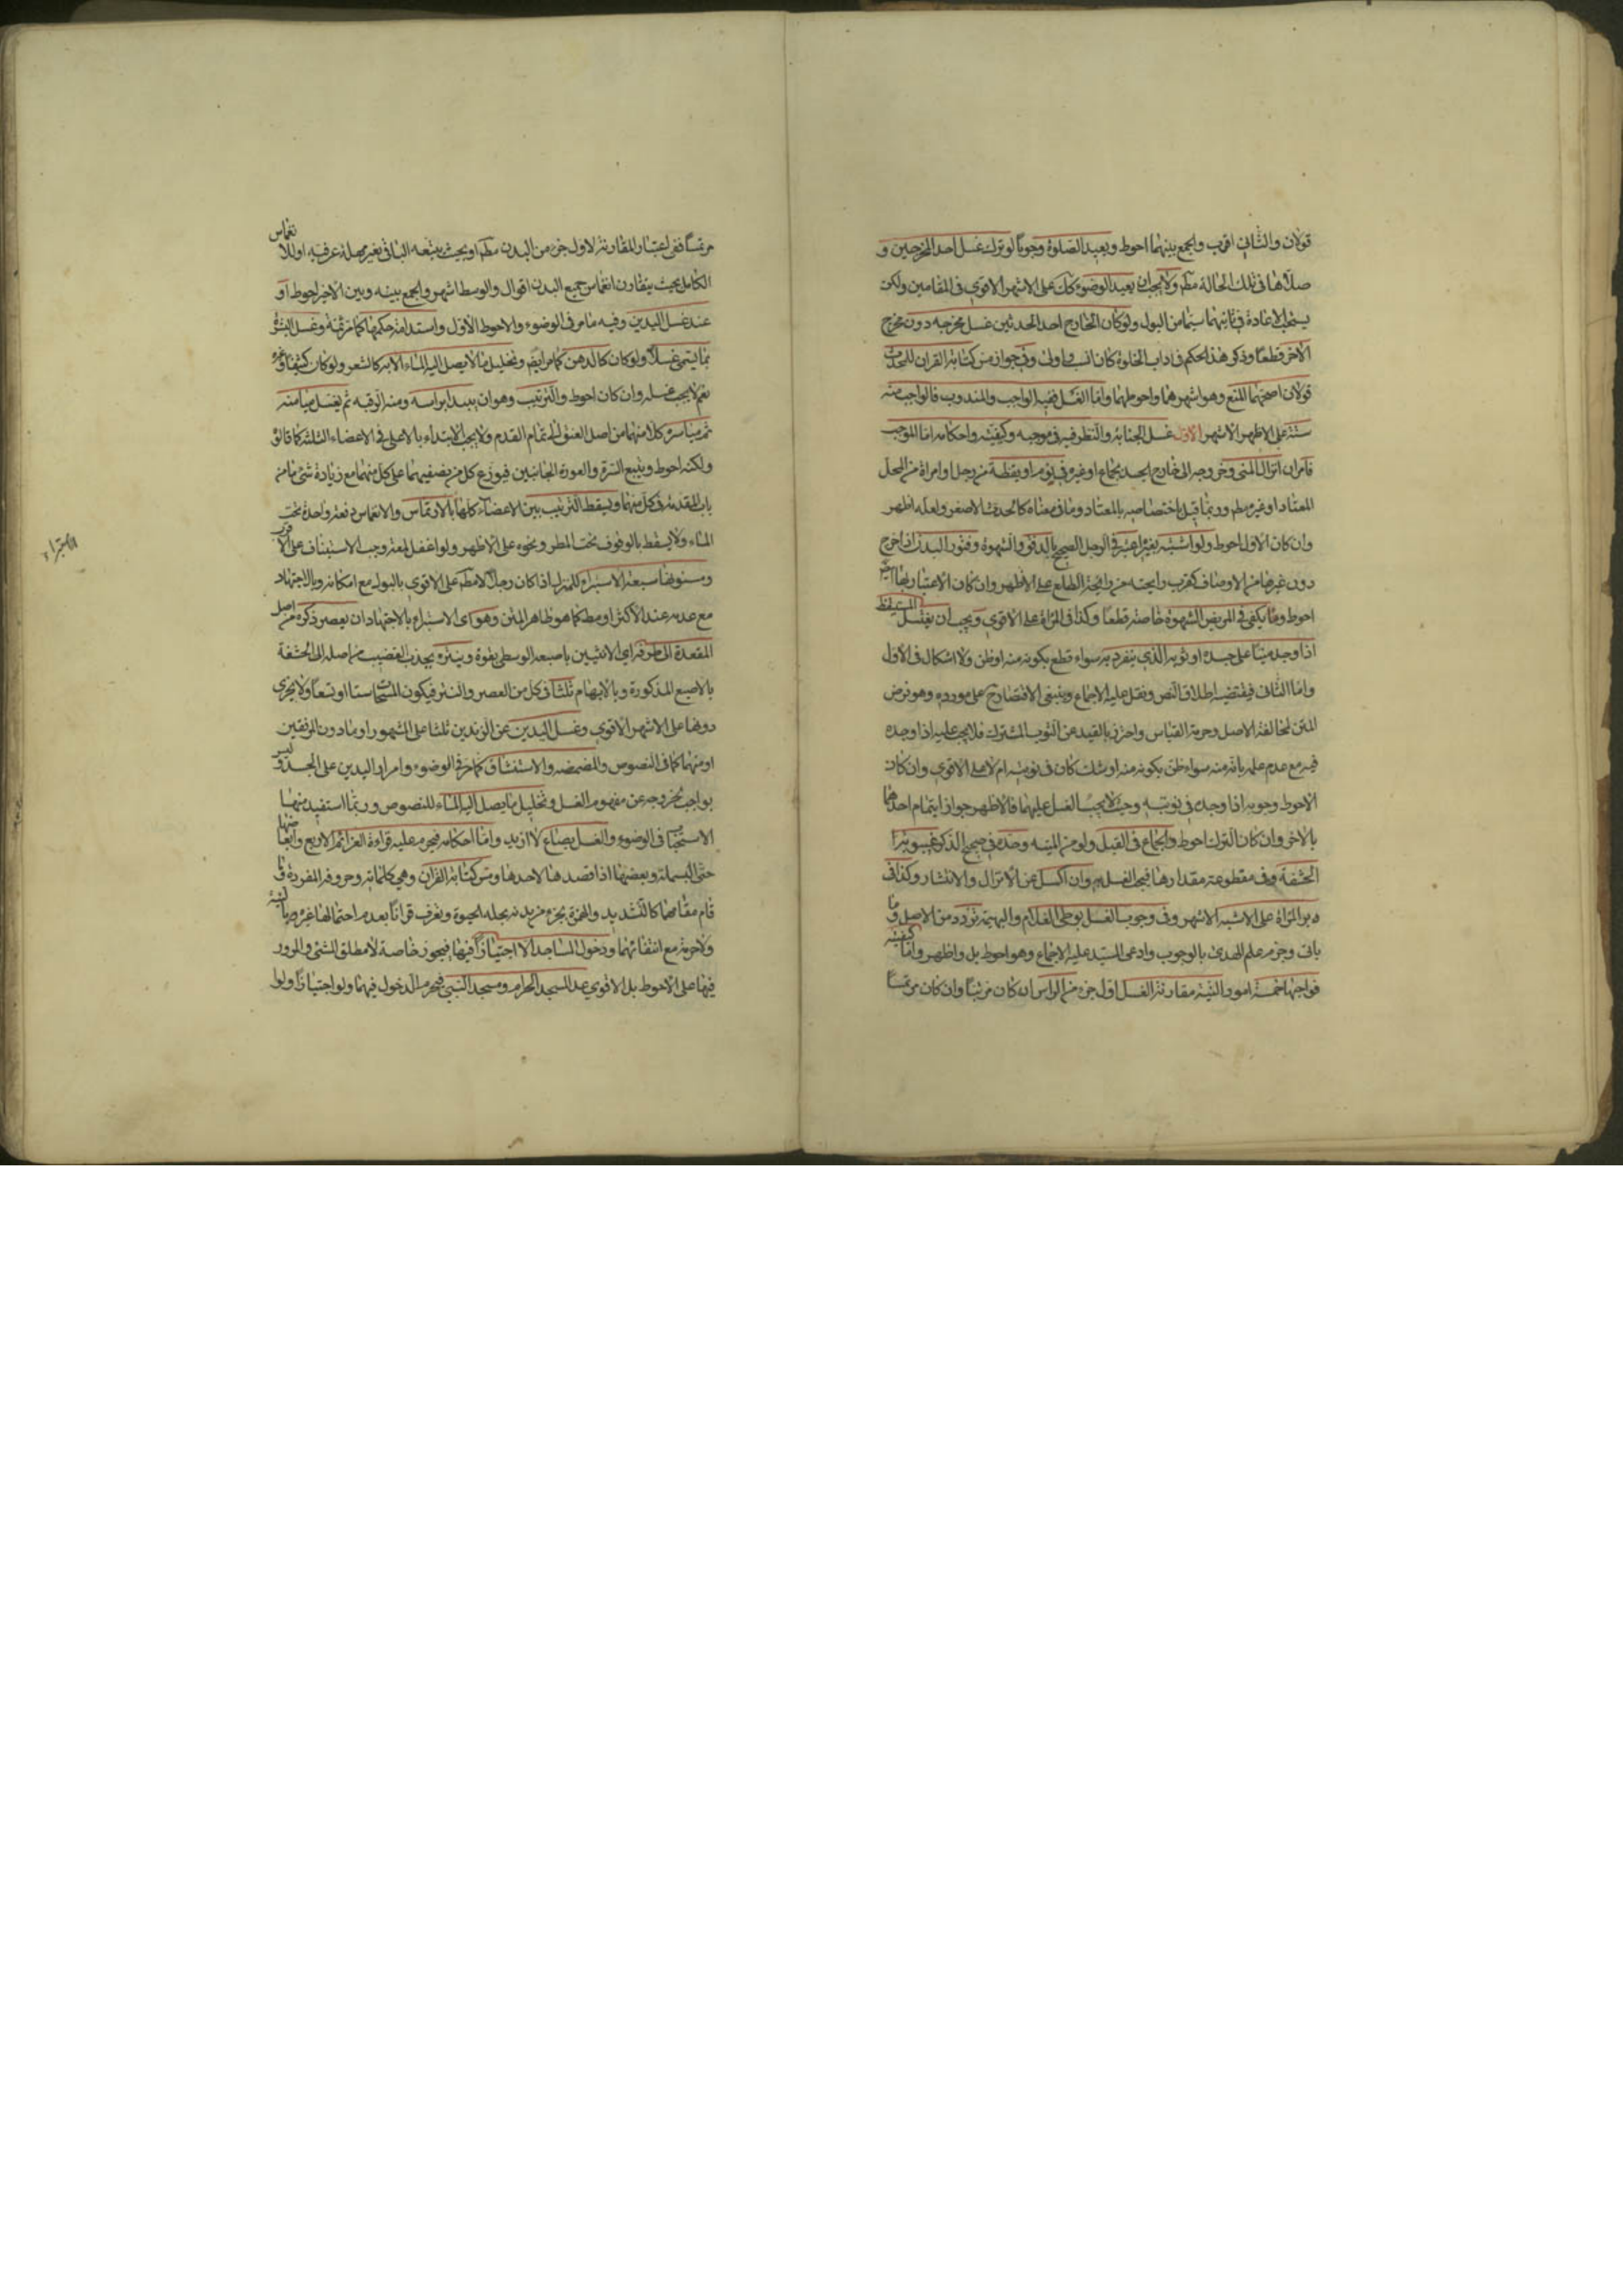 قولان والثاني اقرب والجمع بينهما احوط ويعيد الصلوة وجوبا لو ترك غسل احد المخرجين و
صلاها في تلك الحالة مطم ولا يجب ان يعيد الوضوء كك على الاشهر الاقوى في المقامين ولكن
يستحب الاعادة في ثانيهما سيما من البول ولو كان الخارج احد الحدثين غسل مخرجه دون مخرج
الاخر قطعا وذكر هذا الحكم في اداب الخلوة كان انسب واولى وفي جواز مس كتابة القران للمحدث
قولان اصحهما المنع وهو اشهرهما واحوطهما واما الغسل ففيه الواجب والمندوب فالواجب منه
ستة على الاظهر الاشهر الاول غسل الجنابة والنظر فيه في موجبه وكيفيته واحكامه اما الموجب
فامران انزال المنى وخروجه الى خارج الجسد بجماع او غيره في نوم او يقظة من رجل او امراة من المحل
المعتاد او غيره مطم وربما قيل باختصاصه بالمعتاد وما في معناه كالحدث الاصغر ولعله اظهر
وان كان الاول احوط ولو اشتبه بغيره اعتبر في الرجل الصحيح بالدفق والشهوة وفتور البدن ان اخرج
دون غيرها من الاوصاف كقرب رايحته من رائحة الطلع على الاظهر وان كان الاعتبار بها ايض
احوط وما يكفي في المريض الشهوة خاصة قطعا وكذا في المراة على الاقوى ويجب ان يغتسل المستيقظ
اذا وجد منيا على جسده او ثوبه الذي ينفرد به سواء قطع بكونه منه او ظن ولا اشكال في الاول
واما الثاني فيقتضيه اطلاق النص ونقل عليه الاجماع وينبغي الاقتصار ح على مورده وهو فرض
المتن لمخالفته الاصل وحرمة القياس واحترز بالقيد عن الثوب المشترك فلا يجب عليه اذا وجده
فيه مع عدم علمه بانه منه سواء ظن بكونه منه او شك كان في نوبته ام لا على الاقوى وان كان
الاحوط وجوبه اذا وجده في نوبته وحيث لا يجب الغسل عليهما فالاظهر جواز ايتمام احدهما
بالاخر وان كان الترك احوط والجماع في القبل ولو من الميتة وحده في صحيح الذكر غيبوبة
الحشفة وفي مقطوعه مقدارها فيجب الغسل به وان اكسل عن الانزال والانتشار وكذا في
دبر المراة على الاشبه الاشهر وفي وجوب الغسل بوطى الغلام والبهيمة تردد من الاصل وما
ياتي وجزم علم الهدى بالوجوب وادعى السيد عليه الاجماع وهو احوط بل واظهر واما كيفيته
فواجبها خمسة امور النية مقارنة الغسل اول جزء من الراس ان كان مرتبا وان كان مرتمسا
مرتمسا ففي اعتبار المقارنة لاول جزء من البدن مطم او بحيث يتبعه الباقي بغير مهلة عرفيه او للانغماس
الكامل بحيث يتقارن انغماس جميع البدن اقوال والوسط اشهر والجمع بينه وبين الاخير احوط او
عند غسل اليدين وفيه ما مر في الوضوء والاحوط الاول واستدامة حكمها كما مر ثمة وغسل البشرة
بما يسمى غسلا ولو كان كالدهن كما مر ايض وتخليل ما لا يصل اليه الماء الا به كالشعر ولو كان كثيفا ونحوه
نعم لا يجب غسله وان كان احوط والترتيب وهو ان يبدا براسه ومنه الرقبه ثم يغسل ميامنه
ثم مياسره كلا منهما من اصل العنق الى تمام القدم ولا يجب الابتداء بالاعلى في الاعضاء الثلثة كما قالوا
ولكنه احوط ويتبع السرة والعورة الجانبين فيوزع كل من نصفيهما على كل منهما مع زيادة شئ ما من
باب المقدمة في كل منهما ويسقط الترتيب بين الاعضاء كلها بالارتماس والانغماس دفعة واحدة تحت
الماء ولا يسقط بالوقوف تحت المطر ونحوه على الاظهر ولو اغفل لمعة وجب الاستيناف على الاقوى
ومسنونها سبعة الاستبراء للمنزل اذا كان رجلا لا مطم على الاقوى بالبول مع امكانه وبالاجتهاد
مع عدمه عند الاكثر او مط كما هو ظاهر المتن وهو اى الاستبراء بالاجتهاد ان يعصر ذكره من اصل
المقعدة الى طرفه اي الانثيين باصبعه الوسطى بقوة وينتره بجذب القضيب من اصله الى الحشفة
بالاصبع المذكورة وبالابهام ثلثا في كل من العصر والنتر فيكون المسحات ستا او تسعا ولا يجزى
دونها على الاشهر الاقوى وغسل اليدين عن الزندين ثلثا على المشهور او ما دون المرفقين
او منهما كما في النصوص والمضمضه والاستنشاق كما مر في الوضوء وامرار اليدين على الجسد وليس
بواجب لخروجه عن مفهوم الغسل وتخليل ما يصل اليه الماء للنصوص وربما استفيد منها
الاستحباب في الوضوء والغسل بصاع لا ازيد واما احكامه فيحرم عليه قراءة العزائم الاربع وابعاضها
حتى البسملة وبعضها اذا قصدها لاحدها ومس كتابة القران وهي كلماته وحروفه المفردة وما
قام مقامهما كالتشديد والهمزة بجزء من بدنه تحله الحيوة وتعرف قرانا بعدم احتمالها غيره وبالنية
ولا حرمة مع انتفائهما ودخول المساجد الا اجتيازا فيها فيجوز خاصة لا مطلق المشى والمرور
فيها على الاحوط بل الاقوى عدا المسجد الحرام ومسجد النبي فيحرم الدخول فيهما ولو اجتيازا ولوا